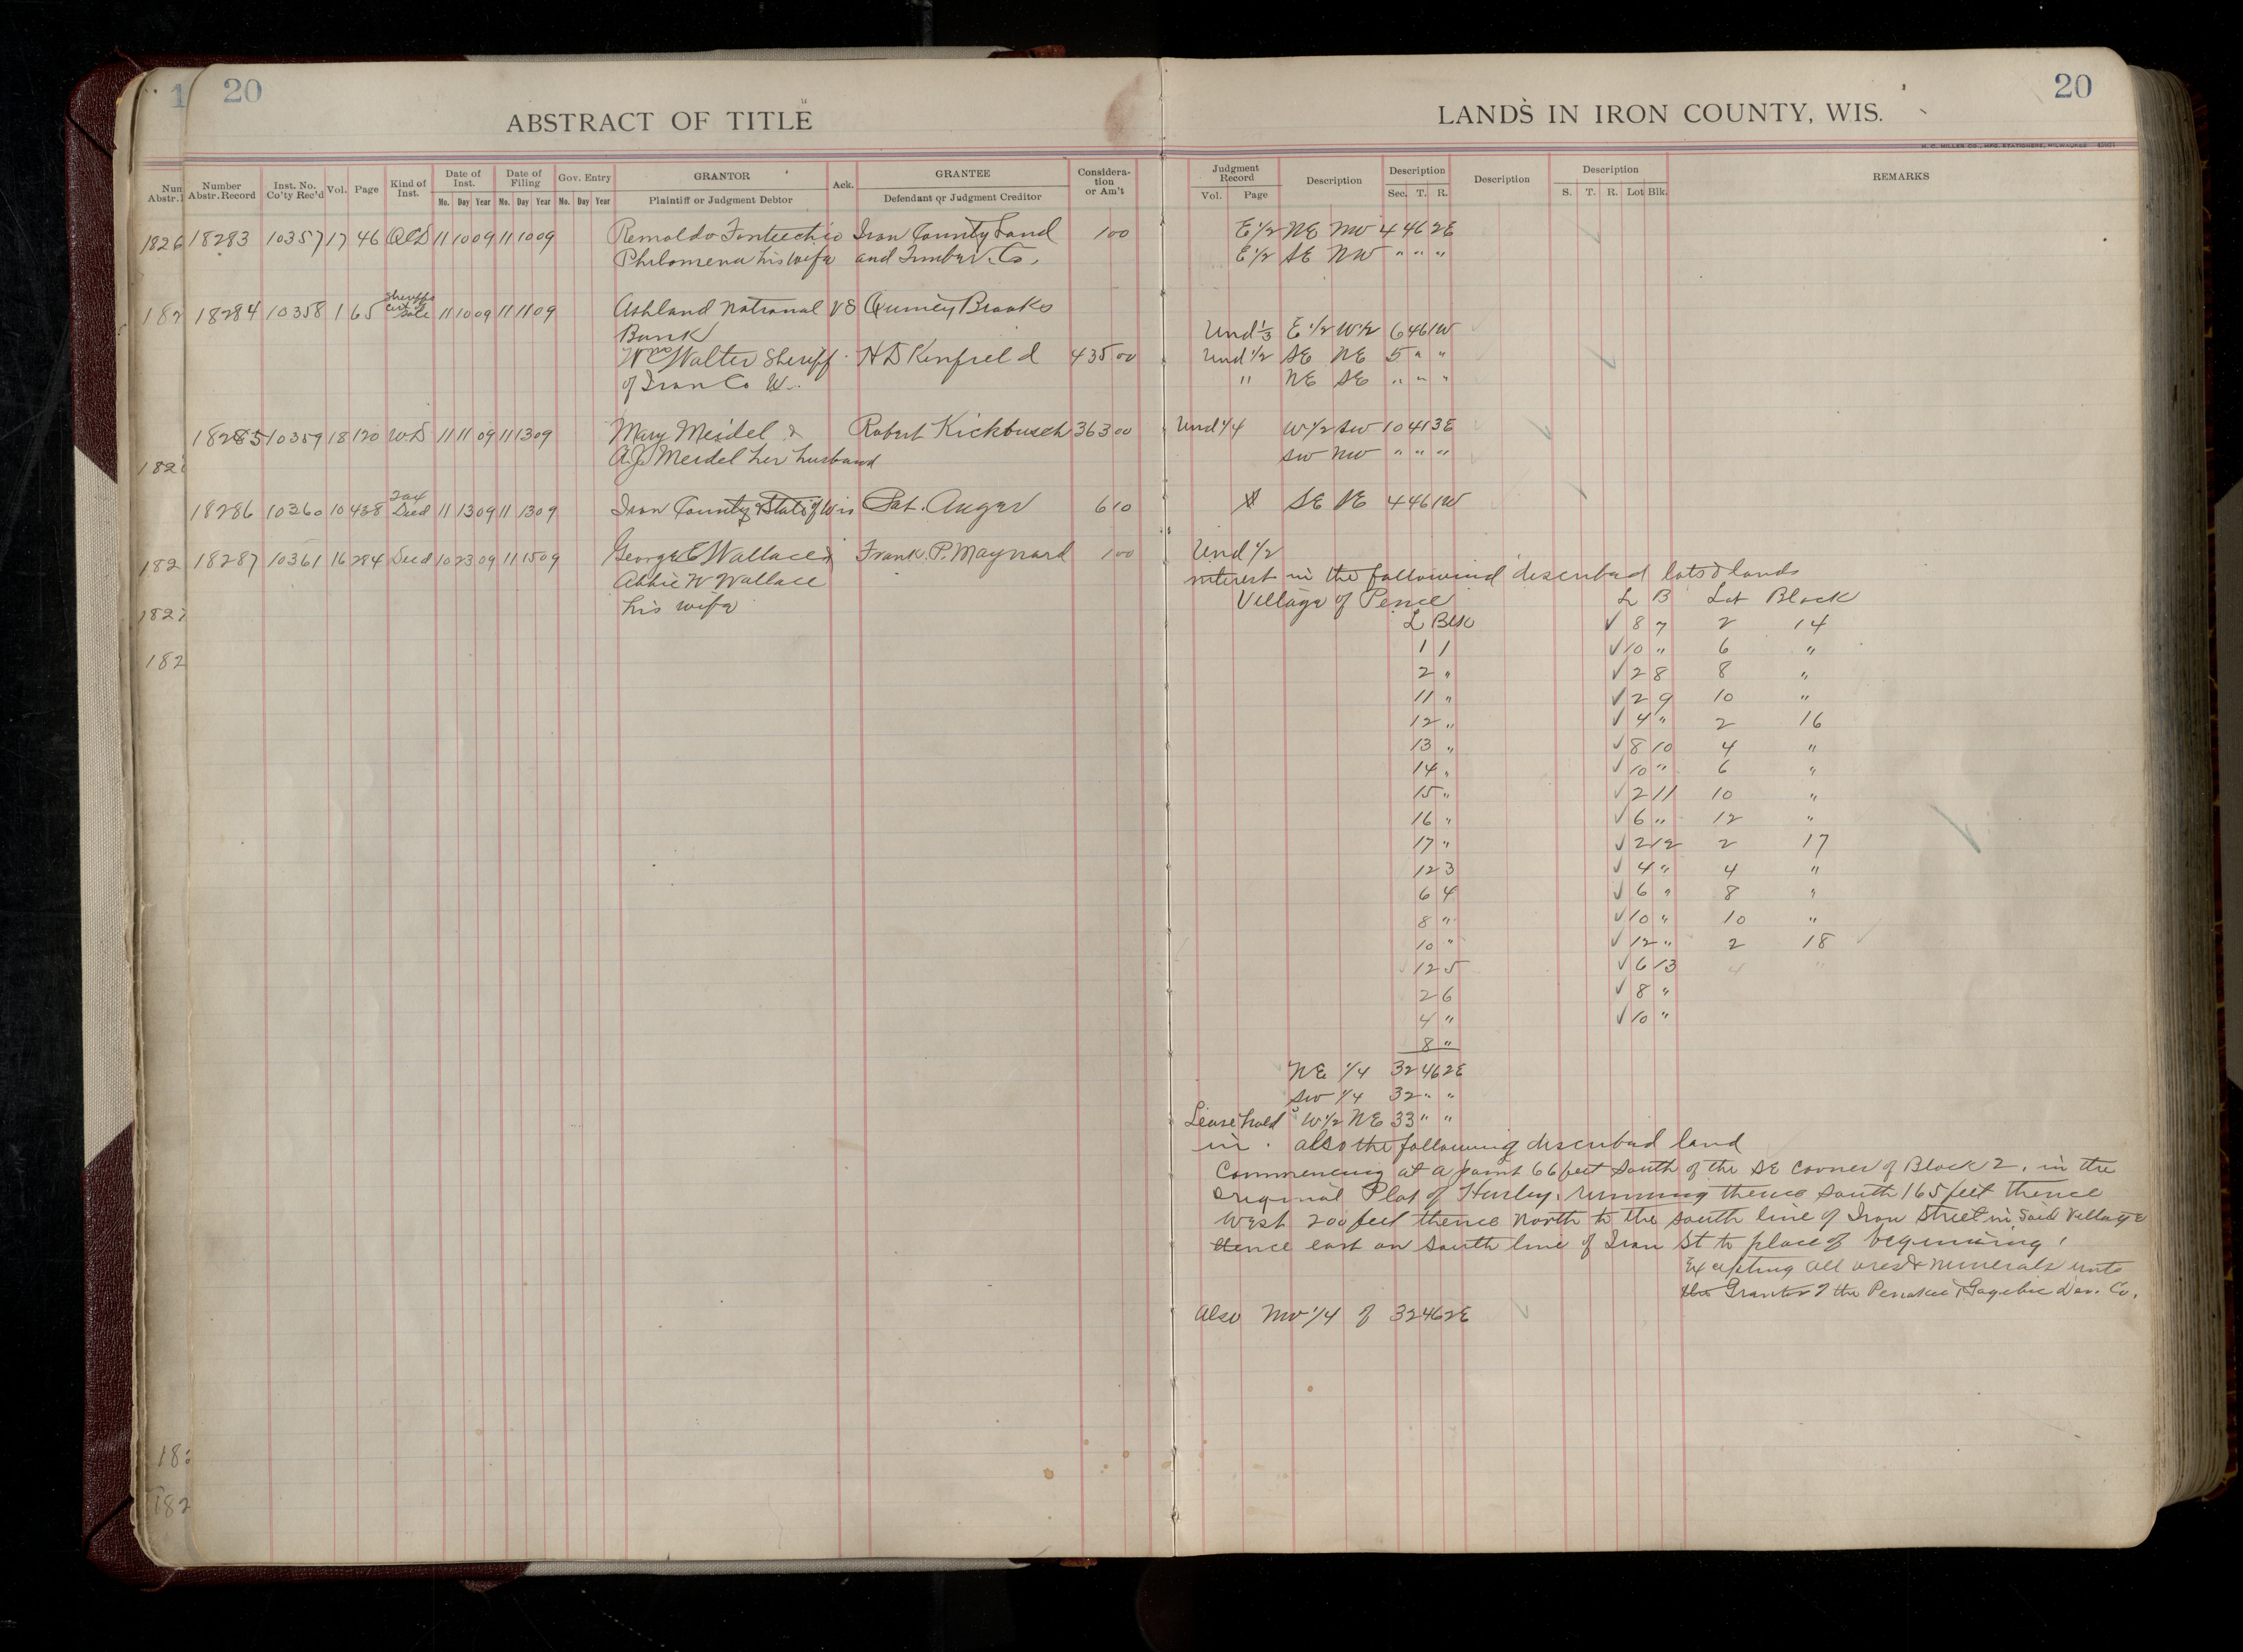 1
20
20
ABSTRACT OF TITLE
LANDS IN IRON COUNTY, WIS.
H. C. MILLER CO., MFG. STATIONERS, MILWAUKEE
Num Abstr.
Number Abstr. Record
Inst. No. Co'ty Rec'd
Vol.
Page
Kind of Inst.
Date of Inst. Mo. Day Year
Date of Filing Mo. Day Year
Gov. Entry Mo. Day Year
GRANTOR Plaintiff or Judgment Debtor
Ack.
GRANTEE Defendant or Judgment Creditor
Considera-tion or Am't
Judgment Record Vol. Page
Description
Description Sec. T. R.
Description
Description S. T. R. Lot Blk.
REMARKS
1826 18283 10357 17 46 QCD 11 10 09 11 10 09 Iron County Land 100 E 1/2 NE NW 4 46 2E
Philomena his wife and Timber Co. E 1/2 SE NW " " "
182 18284 10358 1 65 Sheriffs Cert of Sale 11 10 09 11 11 09 Ashland National VS Quincy Brooks
Bank Und 1/3 E 1/2 W 1/2 6 46 1W
Walter Sheriff H D Kenfield 435 00 Und 1/2 SE NE 5 " "
of Iron Co " NE SE " " "
18285 10359 18 120 WD 11 11 09 11 13 09 Mary Meidel & Robert Kickbusch 363 00 Und 1/4 W 1/2 SW 10 41 3E
A.J. Meidel her husband SW NW " " "
182
18286 10360 10 438 Tax Deed 11 13 09 11 13 09 Iron County & State of Wis Pat. Auger 6 10 SE NE 4 46 1W
182 18287 10361 16 284 Deed 10 23 09 11 15 09 George E Wallace & Frank P. Maynard 1 00 Und 1/2
Abbie W Wallace interest in the followind described lots & lands
his wife Village of Pence L B Lot Block
182
L Blk 8 7 2 14
1 1 10 " 6 "
182
2 " 2 8 8 "
11 " 2 9 10 "
12 " 4 " 2 16
13 " 8 10 4 "
14 " 10 " 6 "
15 " 2 11 10 "
16 " 6 " 12 "
17 " 2 12 2 17
12 3 4 " 4 "
6 4 6 " 8 "
8 " 10 " 10 "
10 " 12 " 2 18
12 5 6 13 4 "
2 6 8 "
4 " 10 "
8 "
NE 1/4 32 46 2E
SW 1/4 32 " "
Lease hold W 1/2 NE 33 " "
in also the following described land
Commencing at a point 66 feet South of the SE Corner of Block 2, in the
original Plat of Hurley, running thence South 165 feet thence
West 200 feet thence North to the south line of Iron Street in said Village
thence east on South line of Iron St to place of beginning
Excepting all ores & minerals unto
the Grantor & the Penokee & Gogebic Dev. Co.
Also NW 1/4 of 32 46 2E
18
182